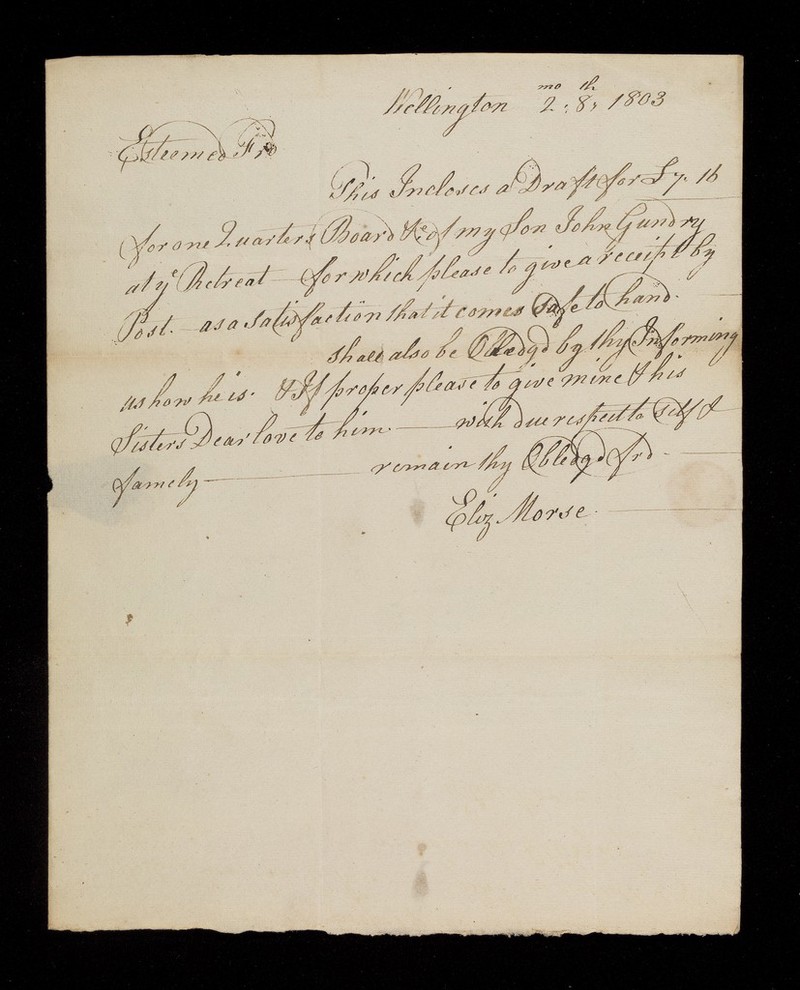 Wellington 2mo 8th 1803
Esteemed Frd
This Incloses a Draft for £7. 16
for one Quarters Board &c of my Son John Gundry
at ye Retreat — for which please to give a receipt by
Post. as a satisfaction that it comes safe to hand.
shall also be Obledgd by thy Informing
us how he is. & If proper please to give mine & his
Sisters Dear love to him. — with due respect to self &
famely — remain thy Obledgd frd —
Eliz Morse